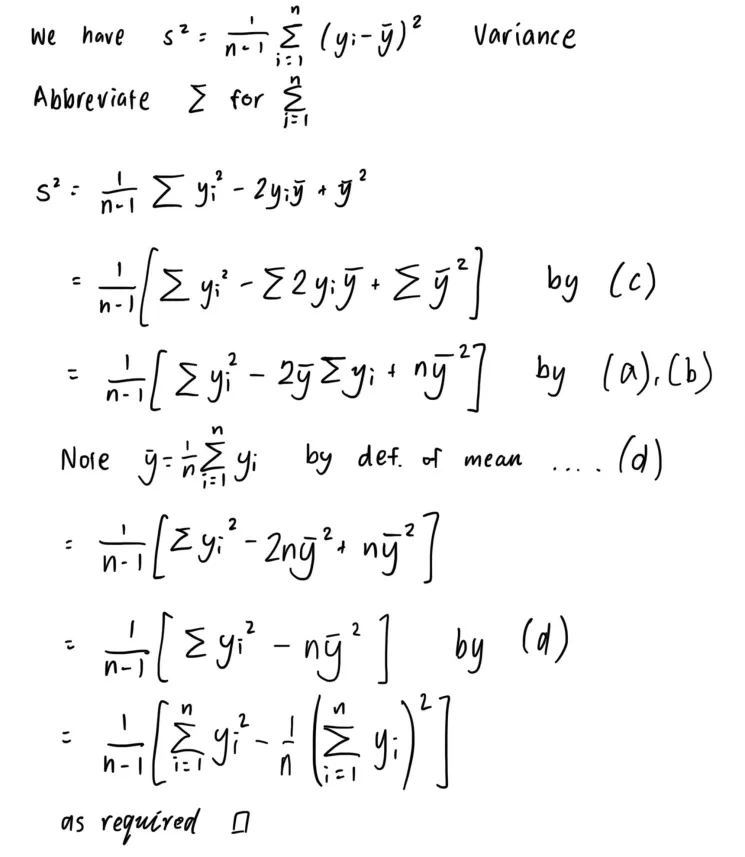 We have s² = 1/(n-1) Σ_{i=1}^{n} (yᵢ - ȳ)² Variance
Abbreviate Σ for Σ_{i=1}^{n}
s² = 1/(n-1) Σ yᵢ² - 2yᵢȳ + ȳ²
= 1/(n-1) [Σ yᵢ² - Σ 2yᵢȳ + Σ ȳ²] by (c)
= 1/(n-1) [Σ yᵢ² - 2ȳ Σ yᵢ + nȳ²] by (a),(b)
Note ȳ = 1/n Σ_{i=1}^{n} yᵢ by def. of mean .... (d)
= 1/(n-1) [Σ yᵢ² - 2nȳ² + nȳ²]
= 1/(n-1) [Σ yᵢ² - nȳ²] by (d)
= 1/(n-1) [Σ_{i=1}^{n} yᵢ² - 1/n (Σ_{i=1}^{n} yᵢ)²]
as required □